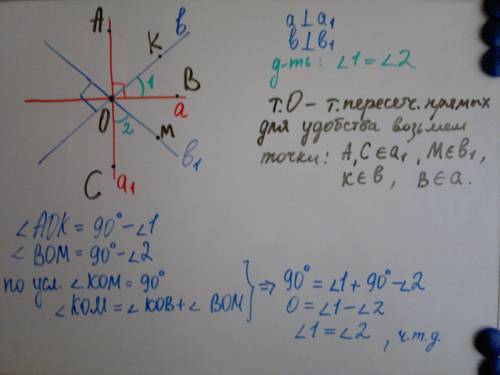 A
b
K
1
B
a
O
2
M
b₁
C
a₁
a ⊥ a₁
b ⊥ b₁
д-ть: ∠1 = ∠2
т. О – т. пересеч. прямых
для удобства возьмем
точки: A, C ∈ a₁, M ∈ b₁,
K ∈ b, B ∈ a.
∠AOK = 90° - ∠1
∠BOM = 90° - ∠2
по усл. ∠KOM = 90°
∠KOM = ∠KOB + ∠BOM
⇒ 90° = ∠1 + 90° - ∠2
0 = ∠1 - ∠2
∠1 = ∠2, ч.т.д.